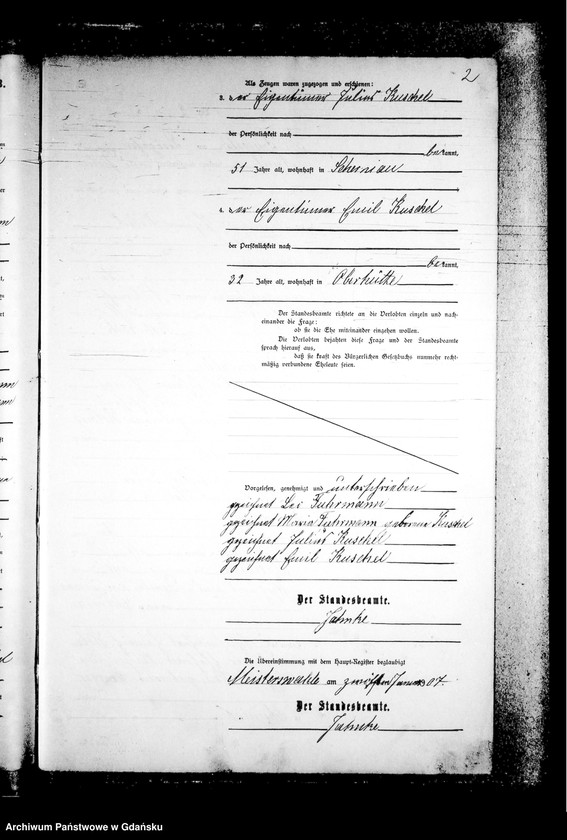 2
Als Zeugen waren zugezogen und erschienen:
3. der Eigentümer Julius Kuschel
der Persönlichkeit nach
bekannt,
51 Jahre alt, wohnhaft in Schernian
4. der Eigentümer Emil Kuschel
der Persönlichkeit nach
bekannt,
32 Jahre alt, wohnhaft in Oberhütte
Der Standesbeamte richtete an die Verlobten einzeln und nach-
einander die Frage:
ob sie die Ehe miteinander eingehen wollen.
Die Verlobten bejahten diese Frage und der Standesbeamte
sprach hierauf aus,
daß sie kraft des Bürgerlichen Gesetzbuchs nunmehr recht-
mäßig verbundene Eheleute seien.
Vorgelesen, genehmigt und unterschrieben
gezeichnet Fuhrmann
gezeichnet Maria Fuhrmann geborene Kuschel
gezeichnet Julius Kuschel
gezeichnet Emil Kuschel
Der Standesbeamte.
Jahnke
Die Übereinstimmung mit dem Haupt-Register beglaubigt
Meisterswalde am Januar 07.
Der Standesbeamte.
Jahnke
Archiwum Państwowe w Gdańsku